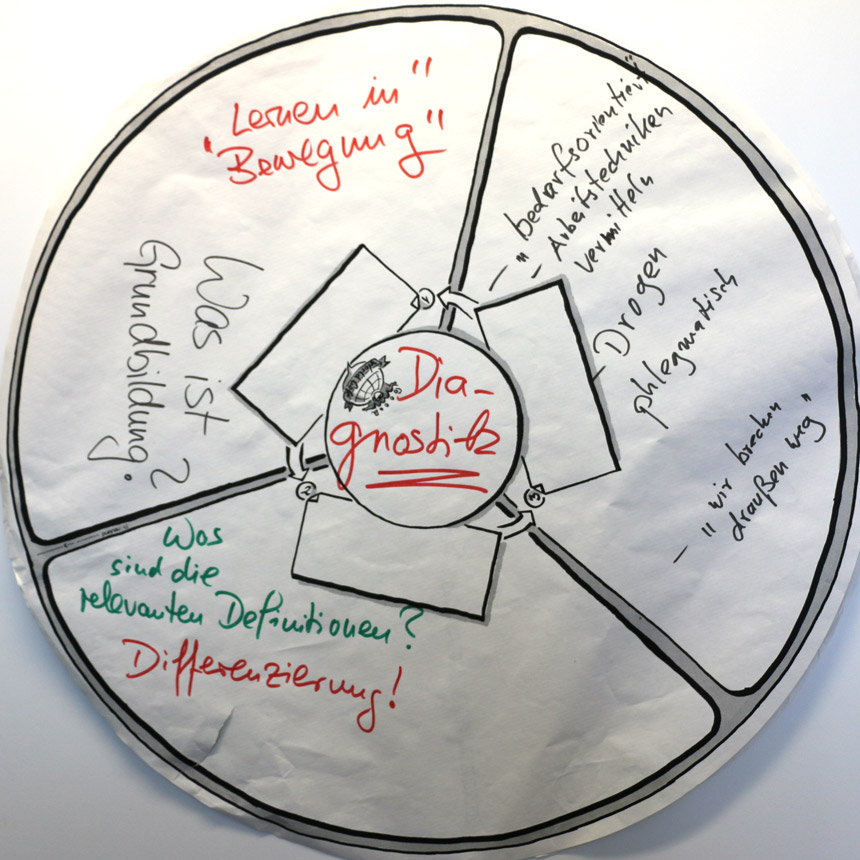 "Lernen in"
"Bewegung"
Was ist
Grundbildung?
- "bedarfsorientiert"
- Arbeitstechniken
vermitteln
- Drogen
phlegmatisch
- "wir brechen
draußen weg"
Dia-
gnostik
1
2
3
Was
sind die
relevanten Definitionen?
Differenzierung!